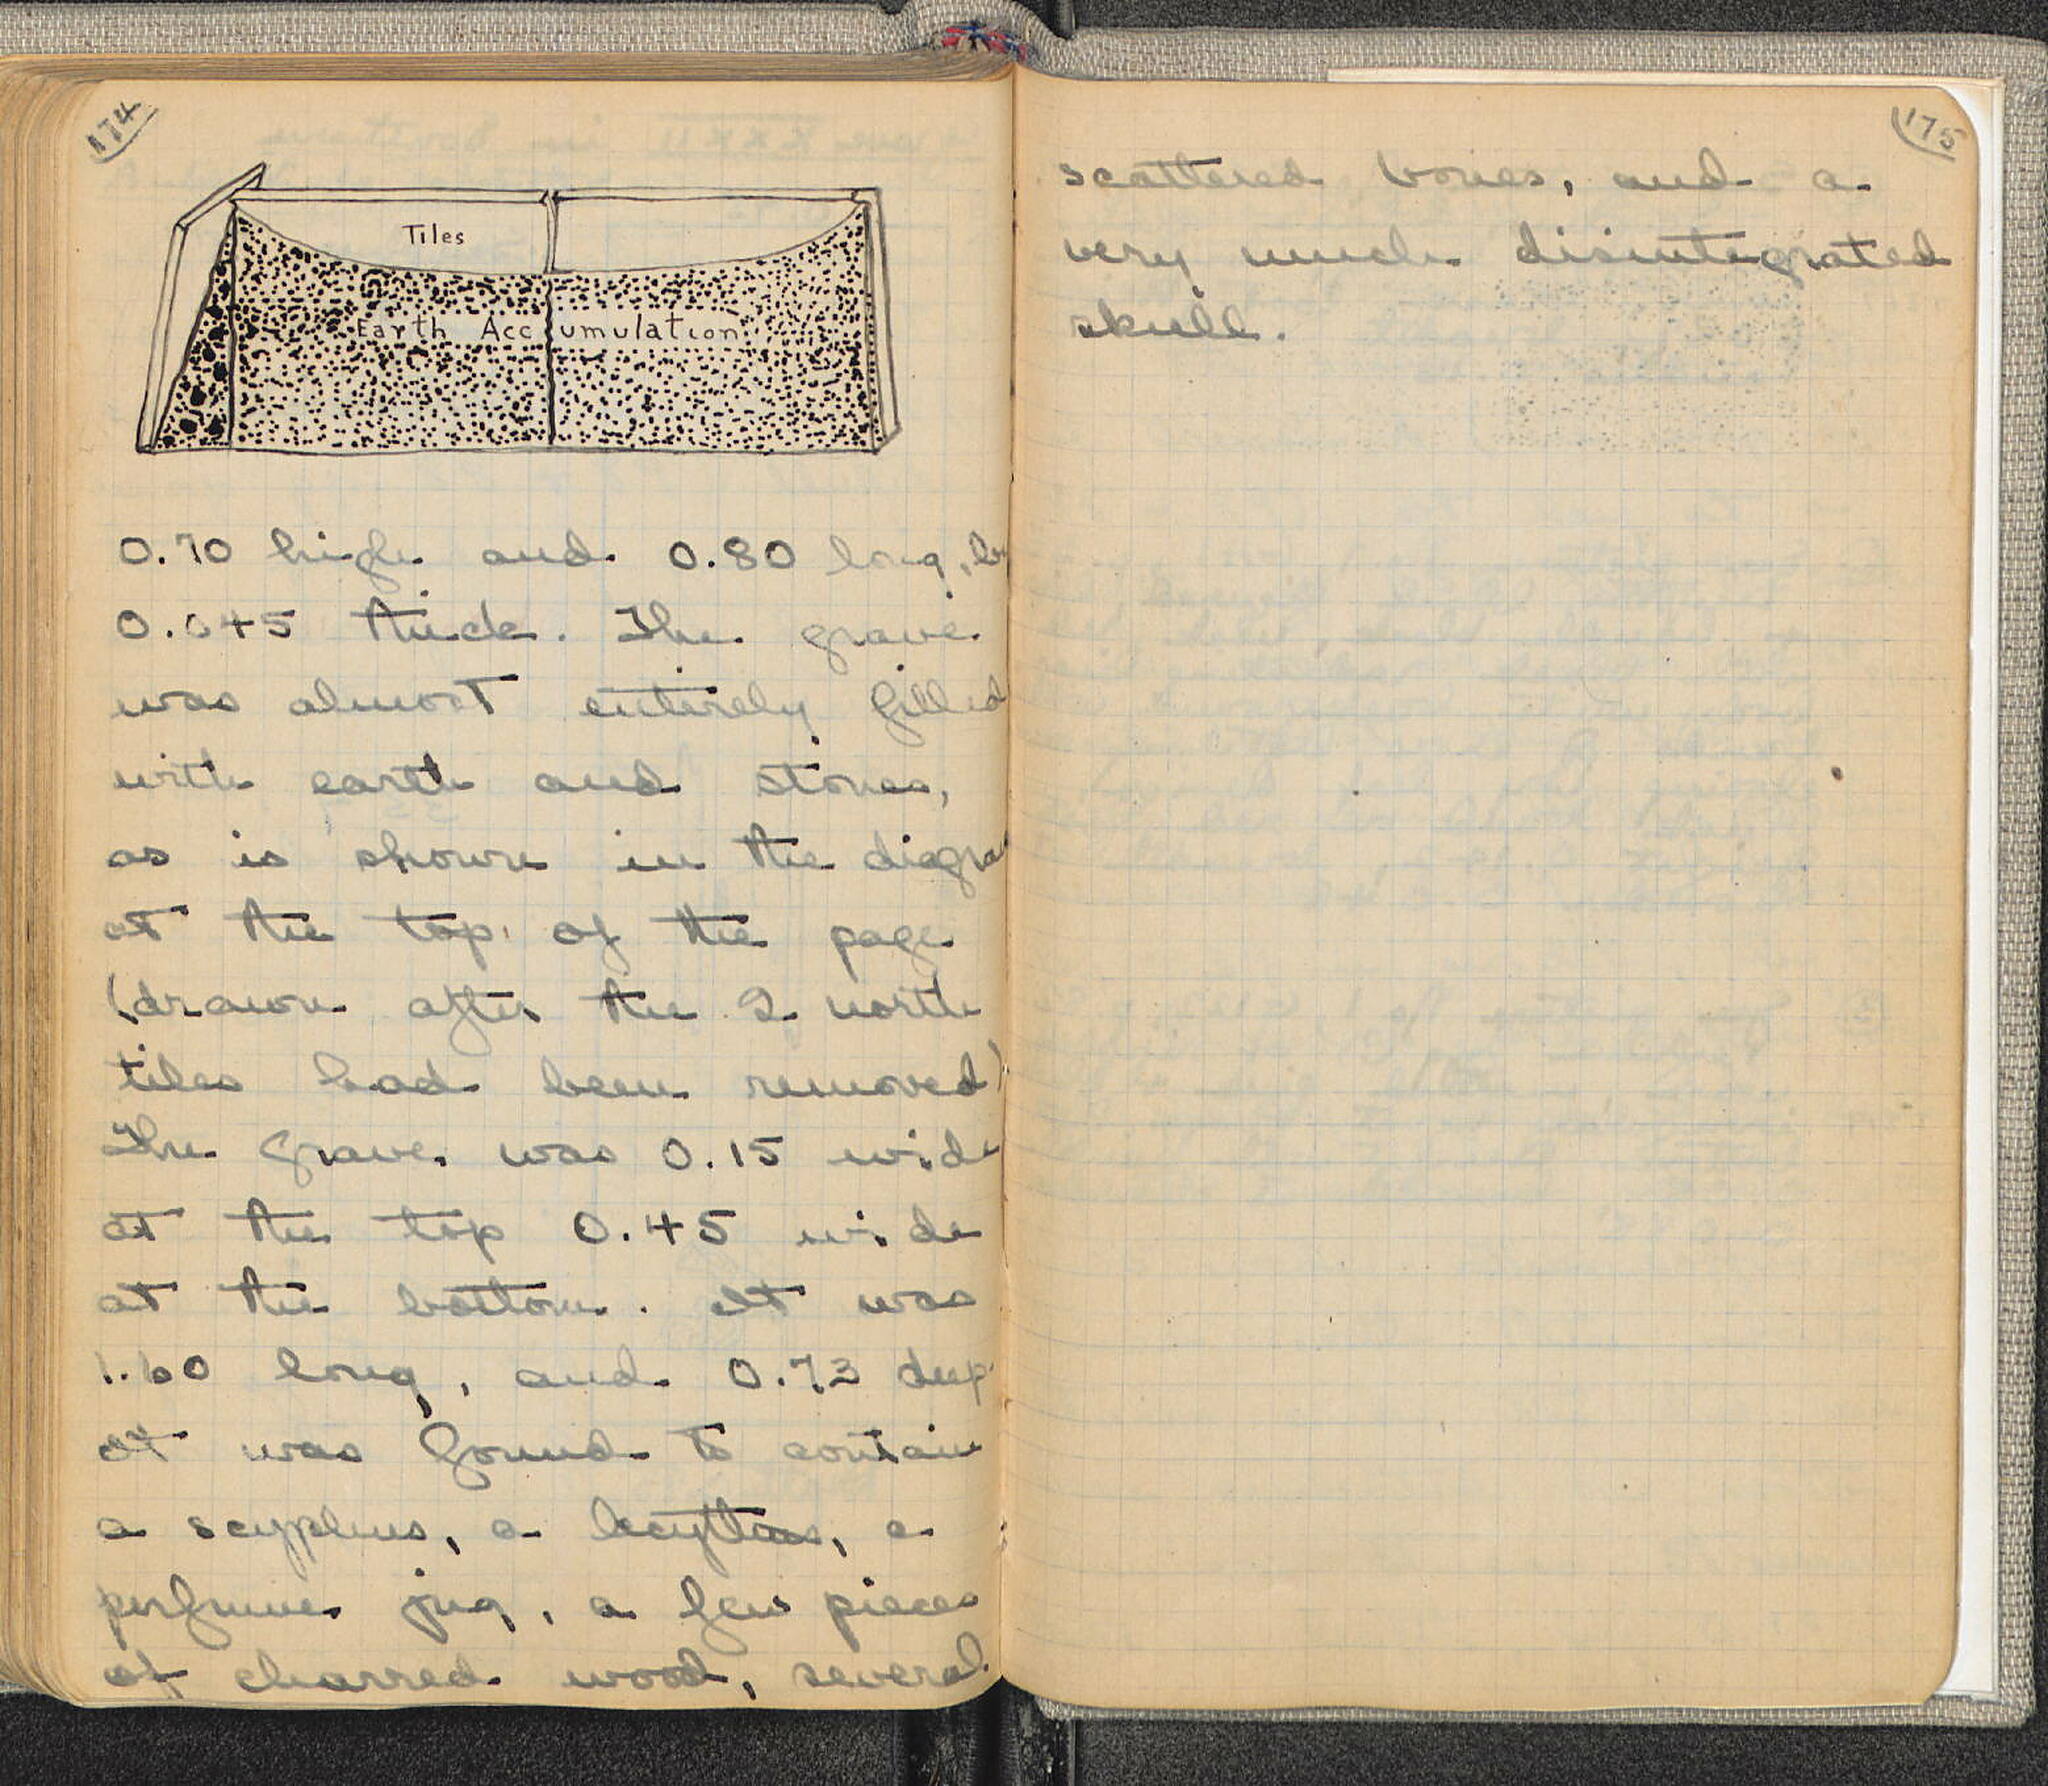 174
Tiles
Earth Accumulation
0.70 high and 0.80 long,
0.045 thick. The grave
was almost entirely filled
with earth and stones,
as is shown in the diagra
at the top of the page
(drawn after the 2 north
tiles had been removed)
The grave was 0.15 wide
at the top 0.45 wide
at the bottom. It was
1.60 long, and 0.73 deep
It was found to contain
a scyphus, a lecythos, a
perfume jug, a few pieces
of charred wood, several
175
scattered bones, and a
very much disintegrated
skull.